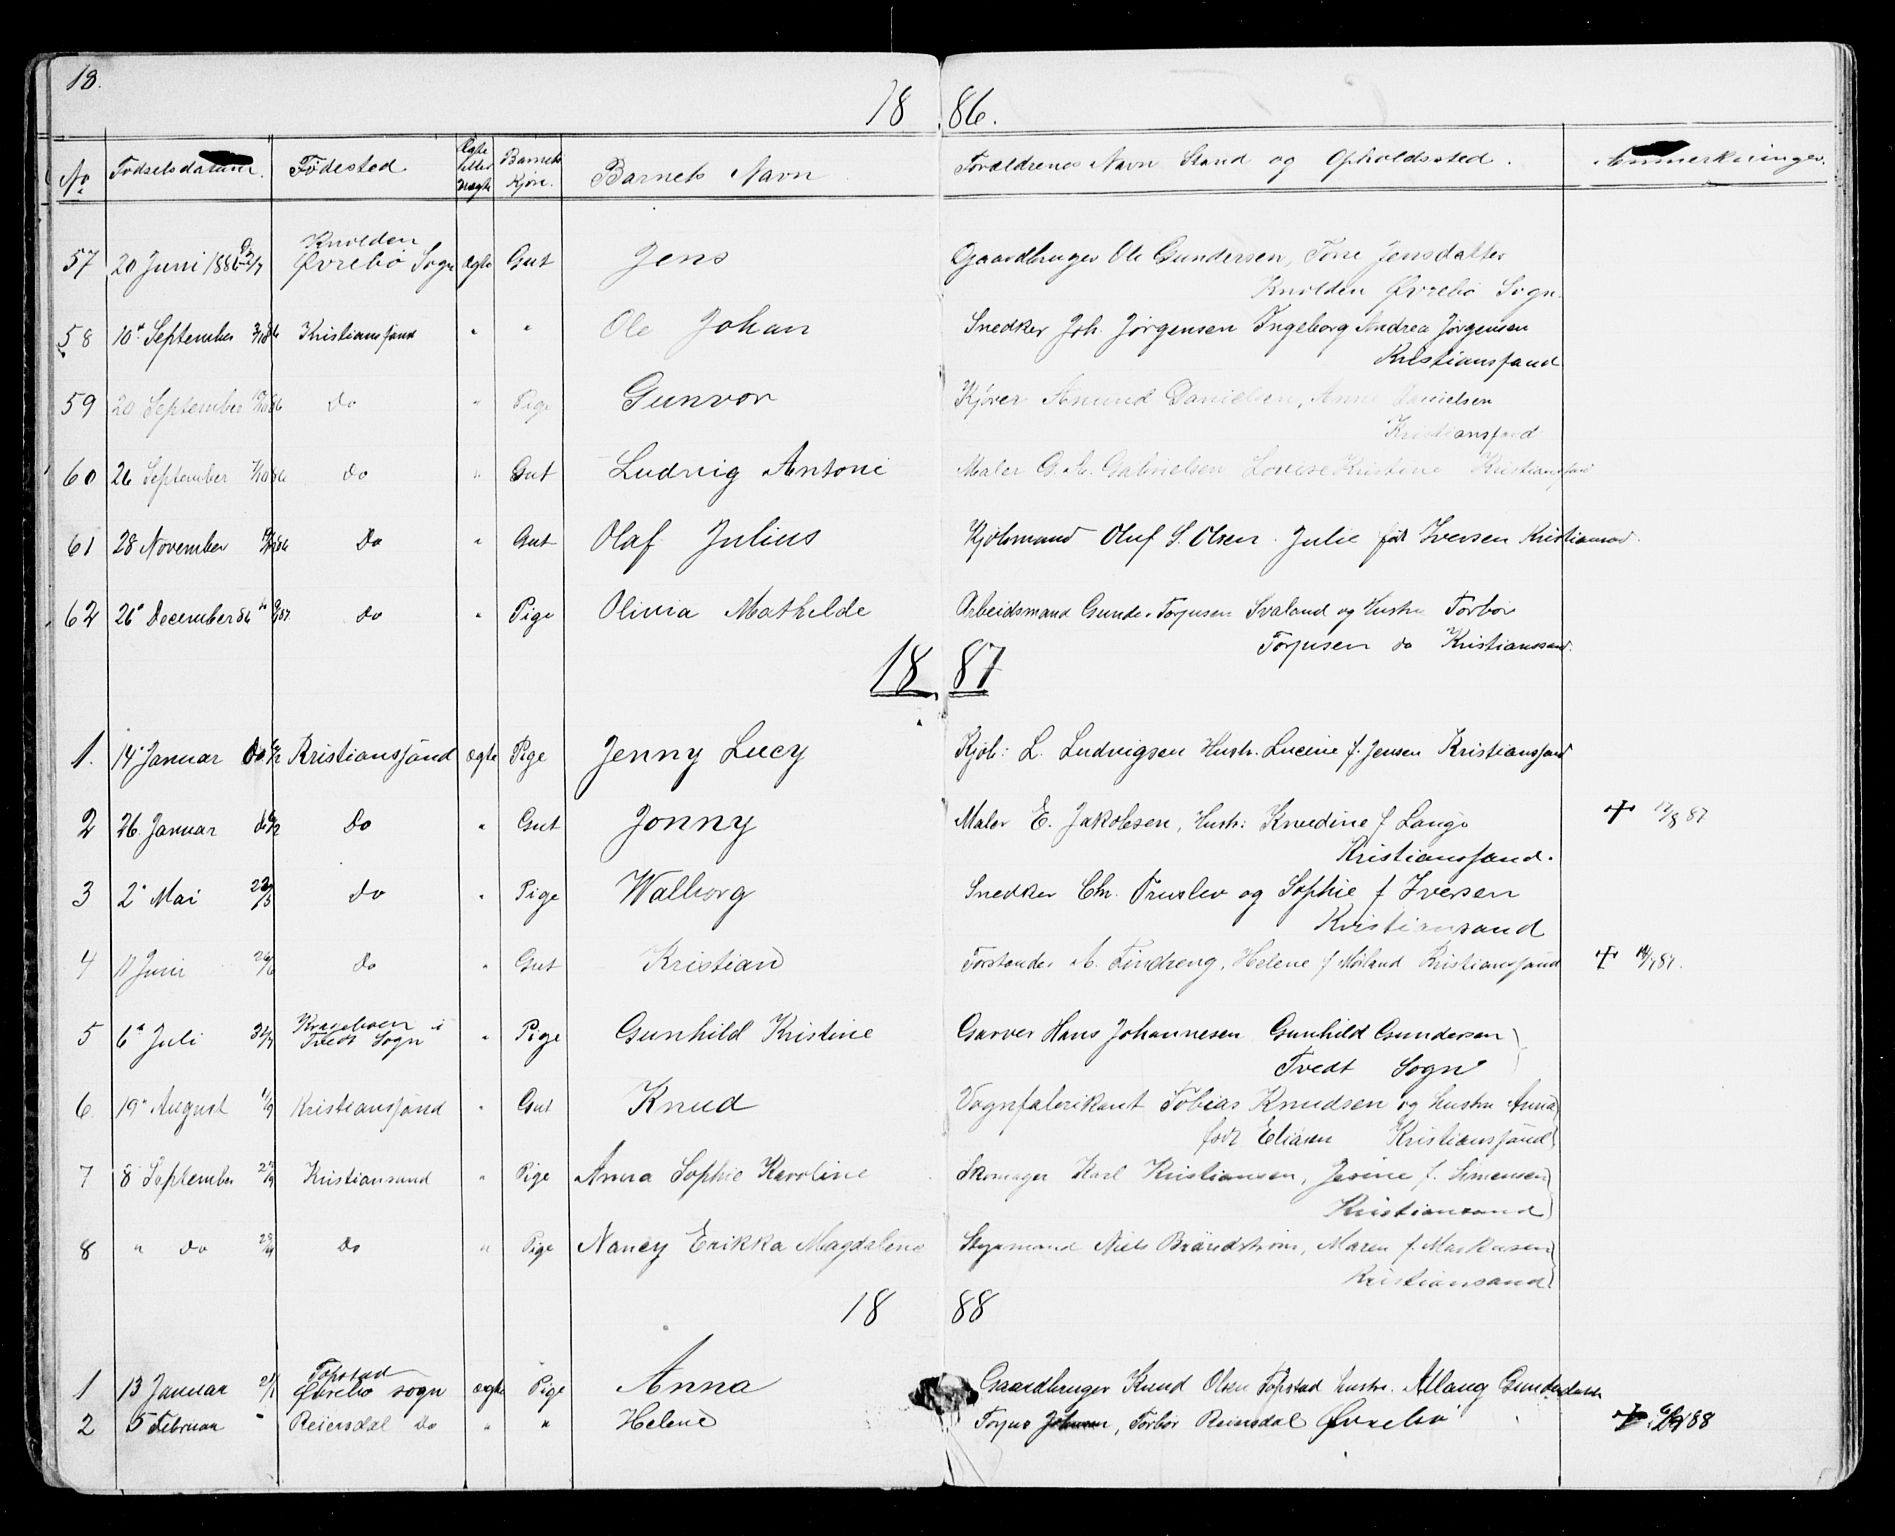 18.
18 86.
No. Fødselsdatum. Fødested Ægte eller uægte Barnets Kjøn. Barnets Navn Forældrenes Navn Stand og Opholdssted. Anmerkninger.
Knolden
57 20 Juni 1886 Øvrebø Sogn Ægte Gut Jens Gaardbruger Ole Gundersen, Tone Jensdatter
Knolden Øvrebø Sogn.
58 10" September Kristianssand " " Ole Johan Snedker Joh. Jørgensen Ingeborg Andrea Jørgensen
Kristianssand
59 20 September Do " Pige Gunvor Kjører Amund Danielsen, Anne Danielsen
Kristianssand
60 26 September Do " Gut Ludvig Antoni Maler G. A. Gabrielsen Lovise Kristine Kristianssand
61 28 November Do " Gut Olaf Julius Kjøbmand Oluf S. Olsen. Julie født Iversen Kristiansand.
62 26" December 86 Do " Pige Olivia Mathilde Arbeidsmand Gunder Torjusen Svaland og Hustru Torbør
Torjusen do Kristianssand.
18 87
1. 14" Januar Kristianssand ægte Pige Jenny Lucy Kjøb: L. Ludvigsen Hustr. Lucine f. Jensen Kristianssand
2 26. Januar Do " Gut Jonny Maler E. Jakobsen, Hustr: Knudine f Lange + 12/8 87
Kristianssand.
3 2" Mai 22/5 Do " Pige Walborg Snedker Chr. Truslev og Sophie f Iversen
Kristiansand
4 11 Juni 26/6 Do " Gut Kristian Forstander A. Lindreng, Helene f Møland Kristianssand + 14/7 87.
Krageboen i
5 6" Juli 31/7 Tvedt Sogn " Pige Gunhild Kristine Garver Hans Johannesen Gunhild Gundersen
Tvedt Sogn
6. 19" August 11/9 Kristianssand " Gut Knud Vognfabrikant Tobias Knudsen og hustru Anna
født Eliasen Kristianssand
7 8" September 25/9 Kristiansund " Pige Anna Sophie Karoline Skomager Karl Kristiansen, Jesine f. Simensen
Kristiansand
8 " do Do " Pige Nancy Erikka Magdalene Styrmand Niels Brändström, Maren f. Markusen
Kristiansand
18 88
Topstad
1 13 Januar 21/1 Øvrebø sogn ægte Pige Anna Gaardbruger Knud Olsen Topstad hustru. Allaug Gundersdatter
2 5 Februar " Reiersdal Do " " Helene Torjus, Torbør Reiersdal Øvrebø + 88